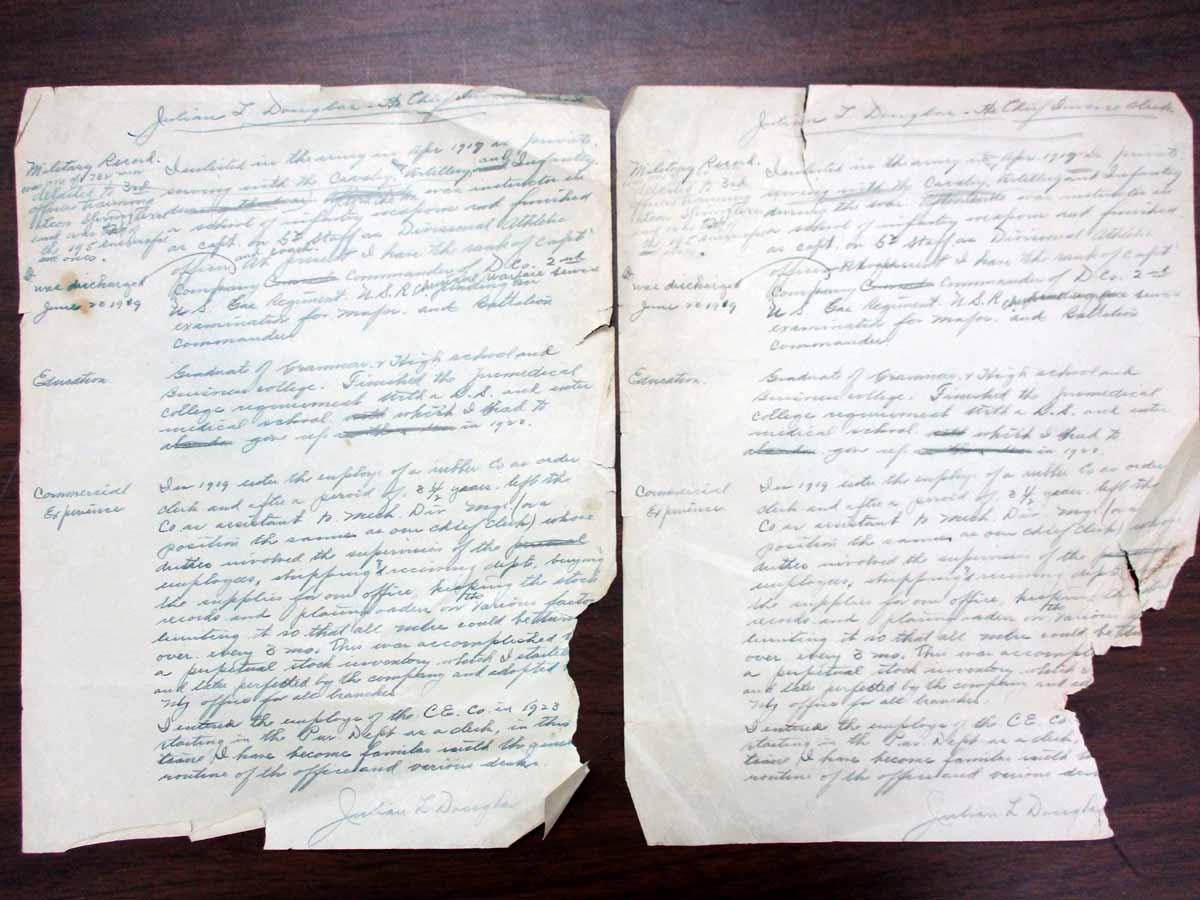 Julian L Douglas - As Chief
Military Record.
was one of 782 men
detailed to 3rd
officers training
June 20 1919
I was discharged
I enlisted in the army in Apr 1917 as private
serving with the Cavalry, Artillery and Infantry
was instructor in
a school of infantry weapons and finished
as capt. on 5th staff as Divisional Athletic
officer. At present I have the rank of Capt
Company Commander of D Co. 2nd
U.S. Gas Regiment. U.S.R Chemical Warfare Service
examination for major. and Battalion
commander
Education.
Graduate of Grammar & High school and
Business college. Finished the premedical
college requirement with a B.S. and enter
medical school which I had to
give up in 1922.
Commercial
Experience
In 1919 enter the employe of a rubber Co as order
clerk and after a peroid of 3 1/2 years. left the
Co as assistant to Mech Div Mgr (or a
position the same as our chief clerk) whose
duties involved the supervision of the
employees, shipping & receiving depts, buying
the supplies for our office, keeping the stock
records and placing orders on the various
limiting it so that all mdse could be turned
over every 3 mo. This was accomplished
a perpetual stock inventory which I started
and later perfected by the company and adopted
NY office for all branches.
I entered the employe of the C.E. Co. in 1923
starting in the Pur. Dept as a clerk, in this
time I have become familar with the
routine of the office and various desks.
Julian L Douglas
Julian L Douglas - As Chief Invoice Clerk
Military Record.
detailed to 3rd
I was discharged
June 20 1919
I enlisted in the army in Apr 1917 as private
serving with the Cavalry, Artillery and Infantry
during the war. was instructor in
a school of infantry weapons and finished
as capt. on 5th staff as Divisional Athletic
officer. I have the rank of Capt
Company Commander of D Co. 2nd
U S Gas Regiment. U.S.R
examination for major. and Battalion
commander
Education.
Graduate of Grammar & High school and
Business college. Finished the premedical
college requirement with a B.S. and enter
medical school which I had to
give up in 1922.
Commercial
Experience
In 1919 enter the employe of a rubber Co as order
clerk and after a peroid of 3 1/2 years. left the
Co as assistant to Mech Div Mgr (or a
position the same as our chief clerk)
duties involved the supervision of the
employees, shipping & receiving
the supplies for our office, keeping the
records and placing orders on the
limiting it so that all mdse could be
over every 3 mo. This was
a perpetual stock inventory
and later perfected by the company and
NY office for all branches.
I entered the employe of the C.E. Co
starting in the Pur. Dept as a clerk,
time I have become familar with
routine of the office and various
Julian L Douglas